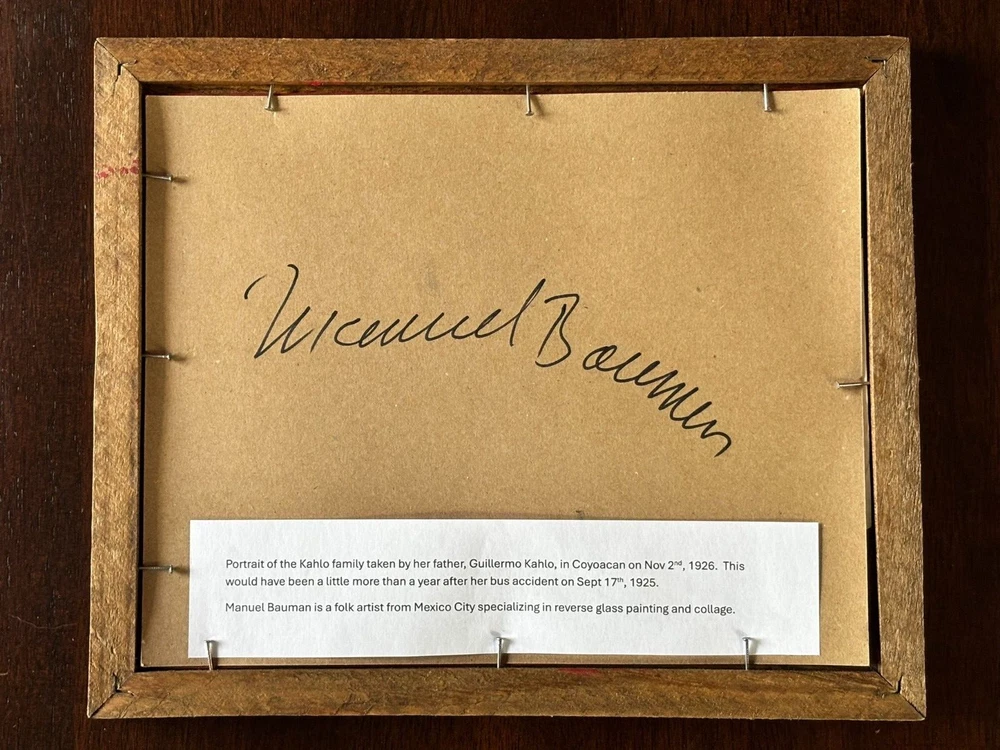 Manuel Bauman
Portrait of the Kahlo family taken by her father, Guillermo Kahlo, in Coyoacan on Nov 2nd, 1926. This
would have been a little more than a year after her bus accident on Sept 17th, 1925.
Manuel Bauman is a folk artist from Mexico City specializing in reverse glass painting and collage.